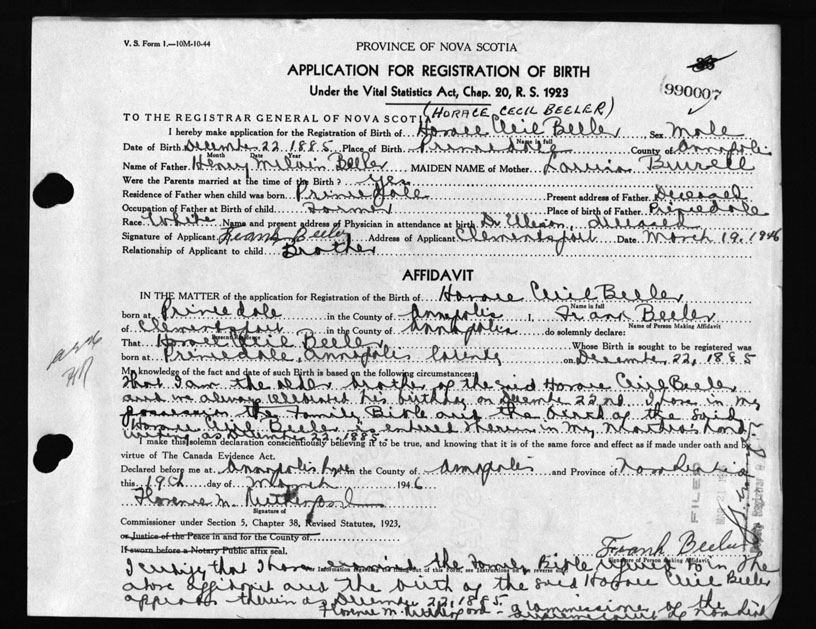 V. S. Form 1.—10M-10-44
PROVINCE OF NOVA SCOTIA
APPLICATION FOR REGISTRATION OF BIRTH
990007
Under the Vital Statistics Act, Chap. 20, R. S. 1923
(HORACE CECIL BEELER)
TO THE REGISTRAR GENERAL OF NOVA SCOTIA
I hereby make application for the Registration of Birth of Horace Cecil Beeler Sex Male
Name in full
Date of Birth December 22 1885 Place of Birth Princedale County of Annapolis
Month Date Year
Name of Father Henry Melvin Beeler MAIDEN NAME of Mother Burrell
Were the Parents married at the time of the Birth? yes
Residence of Father when child was born Princedale Present address of Father Deceased
Occupation of Father at Birth of child Farmer Place of birth of Father Princedale
Race White Name and present address of Physician in attendance at birth Dr. Ellison, deceased
Signature of Applicant Frank Beeler Address of Applicant Clementsport Date March 19, 1946
Relationship of Applicant to child Brother
AFFIDAVIT
IN THE MATTER of the application for Registration of the Birth of Horace Cecil Beeler
Name in full
born at Princedale in the County of Annapolis I, Frank Beeler
Name of Person Making Affidavit
of Clementsport in the County of Annapolis do solemnly declare:
That Horace Cecil Beeler Whose Birth is sought to be registered was
born at Princedale, Annapolis County on December 22, 1885
My knowledge of the fact and date of such Birth is based on the following circumstances:
that I am the older brother of the said Horace Cecil Beeler
and we always celebrated his birthday on December 22nd. I have in my
possession the Family Bible and the birth of the said
Horace Cecil Beeler is entered therein in my mother's hand
writing as December 22, 1885.
I make this solemn declaration conscientiously believing it to be true, and knowing that it is of the same force and effect as if made under oath and by
virtue of The Canada Evidence Act.
Declared before me at Annapolis in the County of Annapolis and Province of Nova Scotia
this 19th day of March 1946
Florence M. Rutherford
Signature of
Commissioner under Section 5, Chapter 38, Revised Statutes, 1923,
or Justice of the Peace in and for the County of
If sworn before a Notary Public affix seal.
Frank Beeler
Signature of Person Making Affidavit
I certify that I have examined the Family Bible referred to in the
above affidavit and the birth of the said Horace Cecil Beeler
appears therein as December 22, 1885.
Florence M. Rutherford - a commissioner of the
supreme court of Nova Scotia
FILED